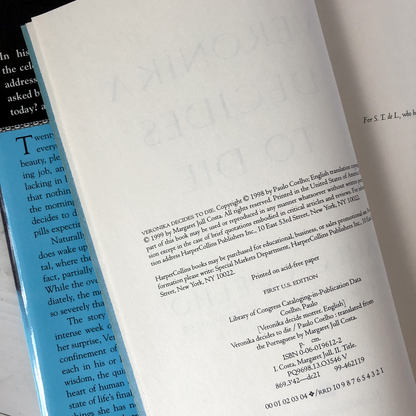 In his
the cele
address
asked b
today? a
Twent
every
beauty, ple
ing job, an
lacking in l
that nothin
the mornin
decides to d
pills expectin
Naturall
does wake up
tal, where tha
fact, partially
While the ove
diately, the m
so severely tha
The story
intense week o
her surprise, Ver
confinement of
each in his or h
wisdom, the qui
heart of human
state of life's final
VERONIKA
DECIDES
TO DIE
For S. T. de L., who
VERONIKA DECIDES TO DIE. Copyright © 1998 by Paulo Coelho; English translation copyright
© 1999 by Margaret Jull Costa. All rights reserved. Printed in the United States of America. No
part of this book may be used or reproduced in any manner whatsoever without written
sion except in the case of brief quotations embodied in critical articles and reviews. For
tion address HarperCollins Publishers Inc., 10 East 53rd Street, New York, NY 10022.
HarperCollins books may be purchased for educational, business, or sales promotional
formation please write: Special Markets Department, HarperCollins Publishers Inc.,
Street, New York, NY 10022.
Printed on acid-free paper
FIRST U.S. EDITION
Library of Congress Cataloging-in-Publication Data
Coelho, Paulo
[Veronika decide morrer. English]
Veronika decides to die / Paulo Coelho : translated from
the Portuguese by Margaret Jull Costa.
p. cm.
ISBN 0-06-019612-2
I. Costa, Margaret Jull. II. Title.
PQ9698.13.O3546 V
869.3'42—dc21 99-462119
00 01 02 03 04 ❖/RRD 10 9 8 7 6 5 4 3 2 1